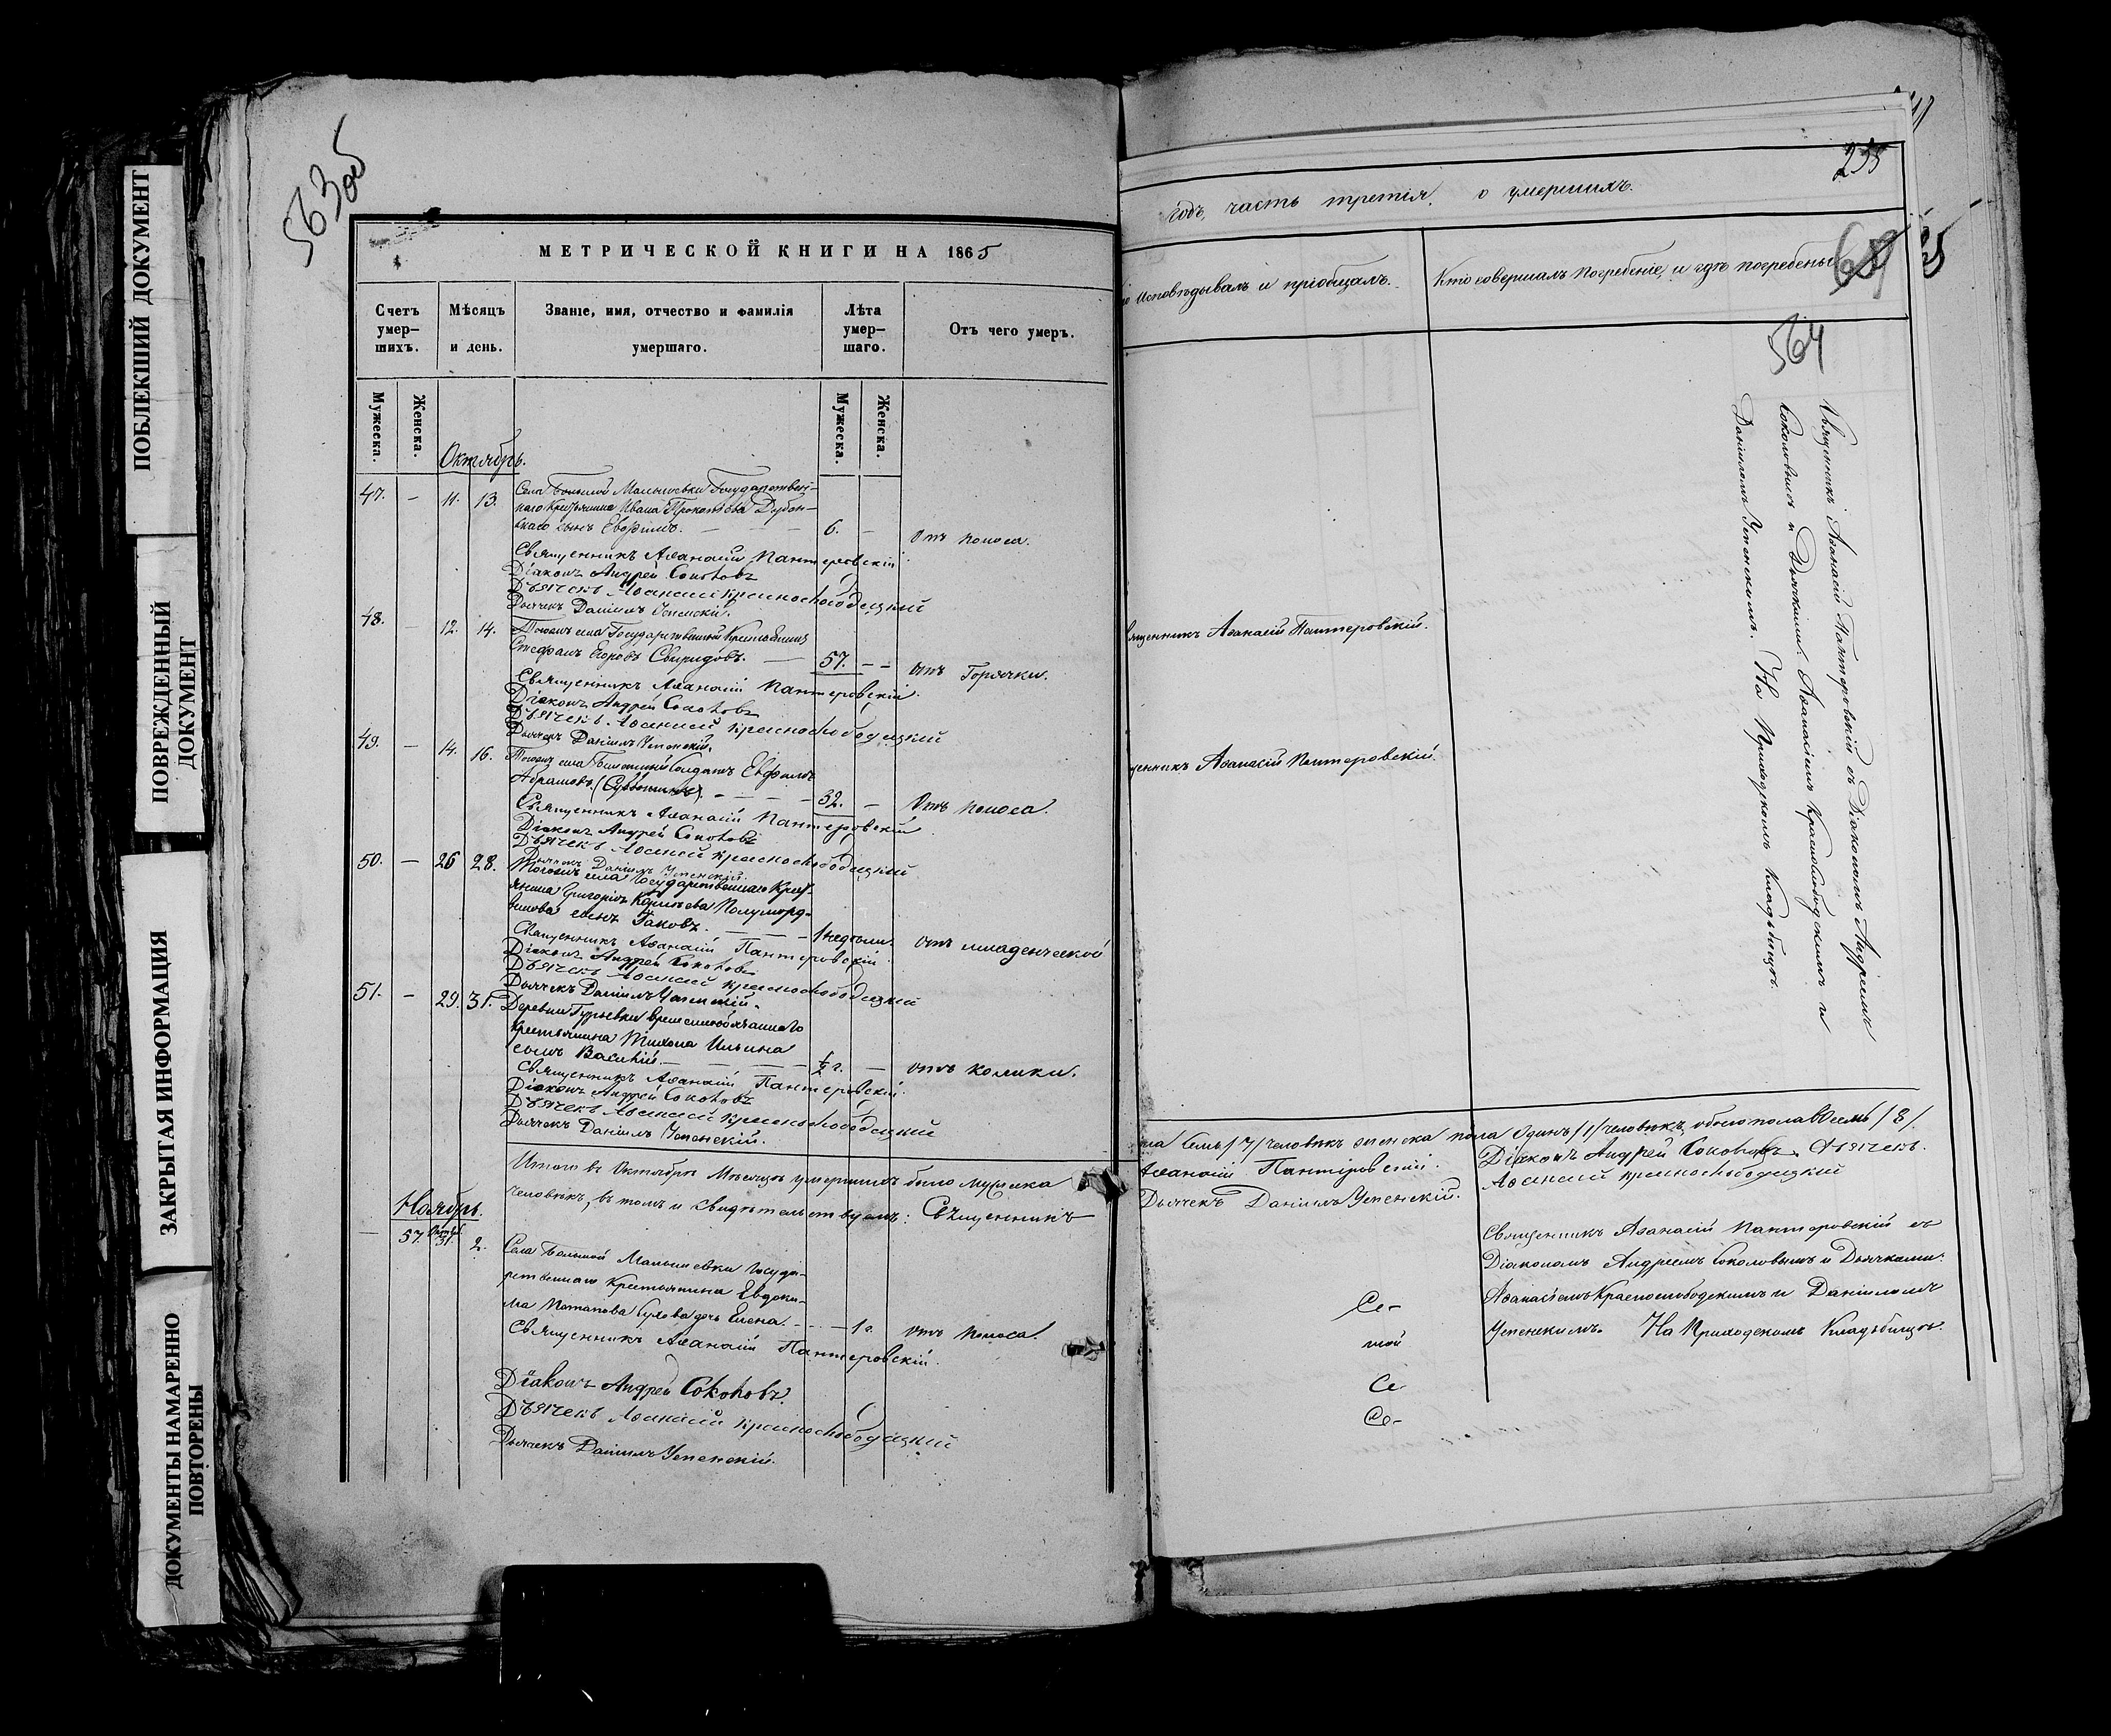 ПОБЛЕКШИЙ ДОКУМЕНТ
ПОВРЕЖДЕННЫЙ
ДОКУМЕНТ
ЗАКРЫТАЯ ИНФОРМАЦИЯ
ДОКУМЕНТЫ НАМАРЕННО
ПОВТОРЕНЫ
563об
МЕТРИЧЕСКОЙ КНИГИ НА 1865
Счетъ умер-шихъ.
Мѣсяцъ и день.
Званіе, имя, отчество и фамилія умершаго.
Лѣта умер-шаго.
Отъ чего умеръ.
Мужеска.
Женска.
Мужеска.
Женска.
Октябрь.
47. — 11. 13. Села Большой Малышевки Государствен-
наго Крестьянина Ивана Прокопьева Дубов-
скаго сынъ Евфимъ. 6. — Отъ поноса.
Священникъ Аѳанасій Пантеровскій
Діаконъ Андрей Соколовъ
Дьячекъ Аѳанасій Краснослободецкій
Дьячекъ Даніилъ Успенскій.
48. — 12. 14. Тогожъ села Государственный Крестьянинъ
Стефанъ Егоровъ Свиридовъ. — 57. — отъ Горячки.
Священникъ Аѳанасій Пантеровскій.
Діаконъ Андрей Соколовъ
Дьячекъ Аѳанасій Краснослободецкій
Дьячекъ Даніилъ Успенскій.
49. — 14. 16. Тогожъ села солдатъ Евфимъ
Абрамовъ. 32. — Отъ поноса.
Священникъ Аѳанасій Пантеровскій
Діаконъ Андрей Соколовъ
Дьячекъ Аѳанасій Краснослободецкій
Дьячекъ Даніилъ Успенскій.
50. — 26 28. Тогожъ села Государственнаго Крес-
тьянина Григорія
сынъ Іаковъ. — 1 недѣли. отъ младенческой
Священникъ Аѳанасій Пантеровскій.
Діаконъ Андрей Соколовъ
Дьячекъ Аѳанасій Краснослободецкій
Дьячекъ Даніилъ Успенскій.
51. — 29. 31. Деревни Гурьевки временнообязаннаго
Крестьянина Тихона Ильина
сынъ Василій. — ½ г. — отъ колики.
Священникъ Аѳанасій Пантеровскій.
Діаконъ Андрей Соколовъ
Дьячекъ Аѳанасій Краснослободецкій
Дьячекъ Даніилъ Успенскій.
Итого въ Октябрѣ Мѣсяцѣ умершихъ было мужеска
человѣкъ, въ томъ и свидѣтельствуемъ: Священникъ
Ноябрь.
— 57. Октяб. 31. 2. Села Большой Малышевки Госуда-
рственнаго Крестьянина Евдоки-
ма Потапова дочь Елена. — 1 г. отъ поноса.
Священникъ Аѳанасій Пантеровскій.
Діаконъ Андрей Соколовъ.
Дьячекъ Аѳанасій Краснослободецкій
Дьячекъ Даніилъ Успенскій.
235
годъ, часть третія, о умершихъ.
исповѣдывалъ и пріобщалъ.
Кто совершалъ погребеніе, и гдѣ погребены.
564
Священникъ Аѳанасій Пантеровскій съ Діакономъ Андреемъ
Соколовымъ и Дьячками: Аѳанасіемъ Краснослободскимъ и
Даніиломъ Успенскимъ. На Приходскомъ Кладбищѣ.
священникъ Аѳанасій Пантеровскій.
щенникъ Аѳанасій Пантеровскій.
пола Семь /7/ человѣкъ женска пола Одинъ /1/ человѣкъ, обоего пола Восемь /8/.
Аѳанасій Пантеровскій. Діаконъ Андрей Соколовъ. Дьячекъ
Аѳанасій Краснослободецкій
Дьячекъ Даніилъ Успенскій.
Священникъ Аѳанасій Пантеровскій съ
Діакономъ Андреемъ Соколовымъ и Дьячками:
Аѳанасіемъ Краснослободскимъ и Даніиломъ
Успенскимъ. На Приходскомъ Кладбищѣ.
Се-
мой
Се
Се-